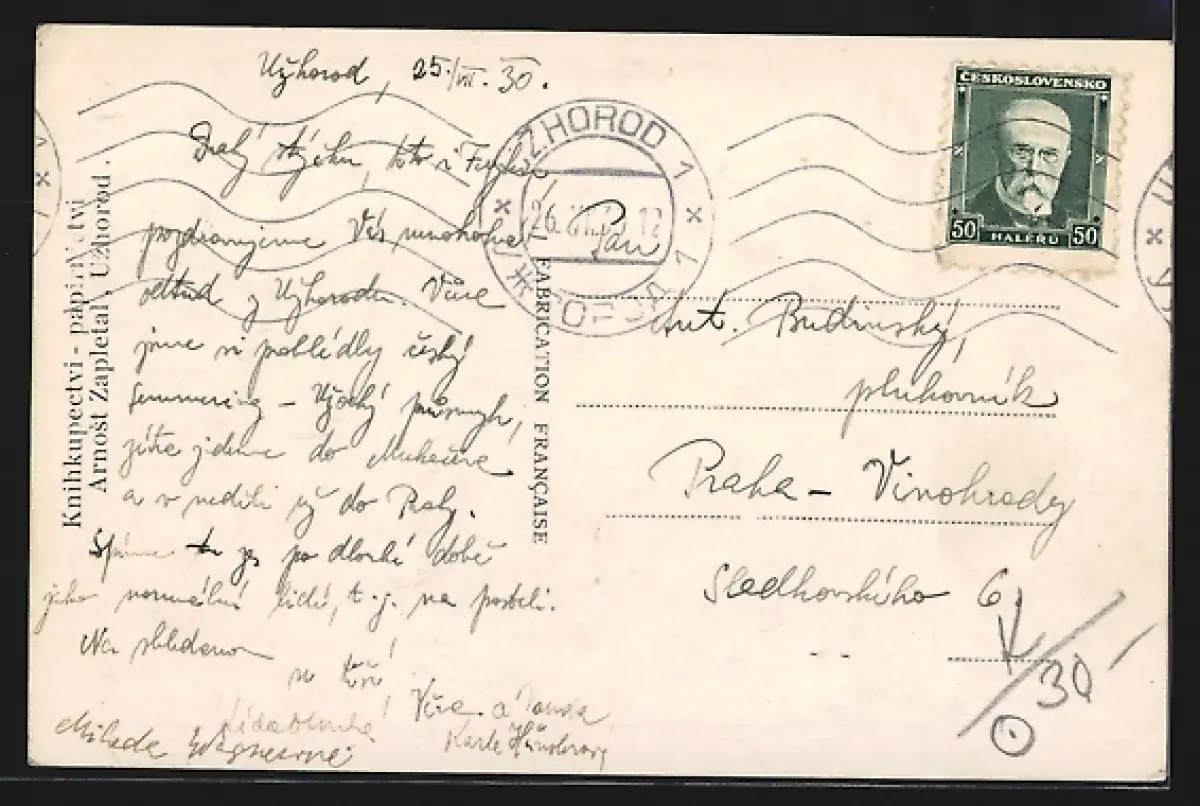 Užhorod, 25./VII. 30.
Drahý strýčku,
pozdravujeme Vás mnohokrát
odtud z Užhorodu. Včera
jsme si prohlédly český
Semmering – Užocký průsmyk,
zítra jedeme do Mukačeva
a v neděli už do Prahy.
Spíme tu zas po dlouhé době
jako normální lidé, t. j. na posteli.
Na shledanou
Věra a
Milada
Knihkupectví - papírnictví
Arnošt Zapletal, Užhorod.
FABRICATION FRANÇAISE
UŽHOROD 1
26.
ČESKOSLOVENSKO
50 HALÉŘŮ 50
Pan
Ant. Budinský,
plukovník
Praha – Vinohrady
Sladkovského 6
30